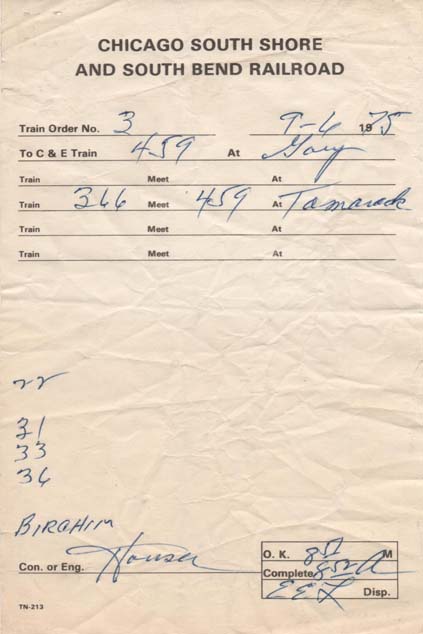 CHICAGO SOUTH SHORE
AND SOUTH BEND RAILROAD
Train Order No. 3 9-6 1975
To C & E Train 459 At Gary
Train Meet At
Train 366 Meet 459 At Tamarack
Train Meet At
Train Meet At
31
33
36
BIRAHIM
Con. or Eng. Houser
O. K. 851 M
Complete 852 A
EEL Disp.
TN-213